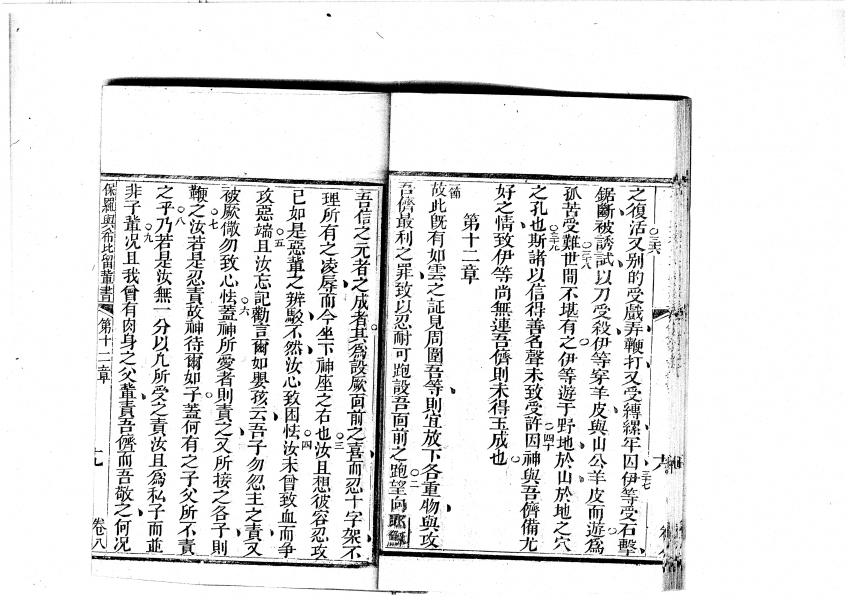 之復活又别的受戲弄鞭打又受縛縲牢囚伊等受石擊
鋸斷被誘試以刀受殺伊等穿羊皮與山公羊皮而遊爲
孤苦受難世間不堪有之伊等遊于野地於山於地之穴
之孔也斯諸以信得善名聲未致受許因神與吾儕備尤
好之情致伊等尚無連吾儕則未得玉成也
第十二章
故此既有如雲之証見周圍吾等則宜放下各重物與攻
吾儕最利之罪致以忍耐可跑設吾面前之跑望向耶穌
吾信之元者之成者其爲設厥面前之喜而忍十字架不
理所有之凌辱而今坐下神座之右也汝且想彼容忍攻
已如是惡輩之辨駁不然汝心致困怯汝未曾致血而争
攻惡端且汝忘記勸言爾如嬰孩云吾子勿忽主之責又
被厥儆勿致心怯蓋神所愛者則責之又所接之各子則
鞭之汝若是忍責故神待爾如子蓋何有之子父所不責
之乎乃若是汝無一分以凡所受之責汝且爲私子而並
非子輩况且我曾有肉身之父輩責吾儕而吾敬之何况
保羅與希比留輩書 第十二章 九 卷八